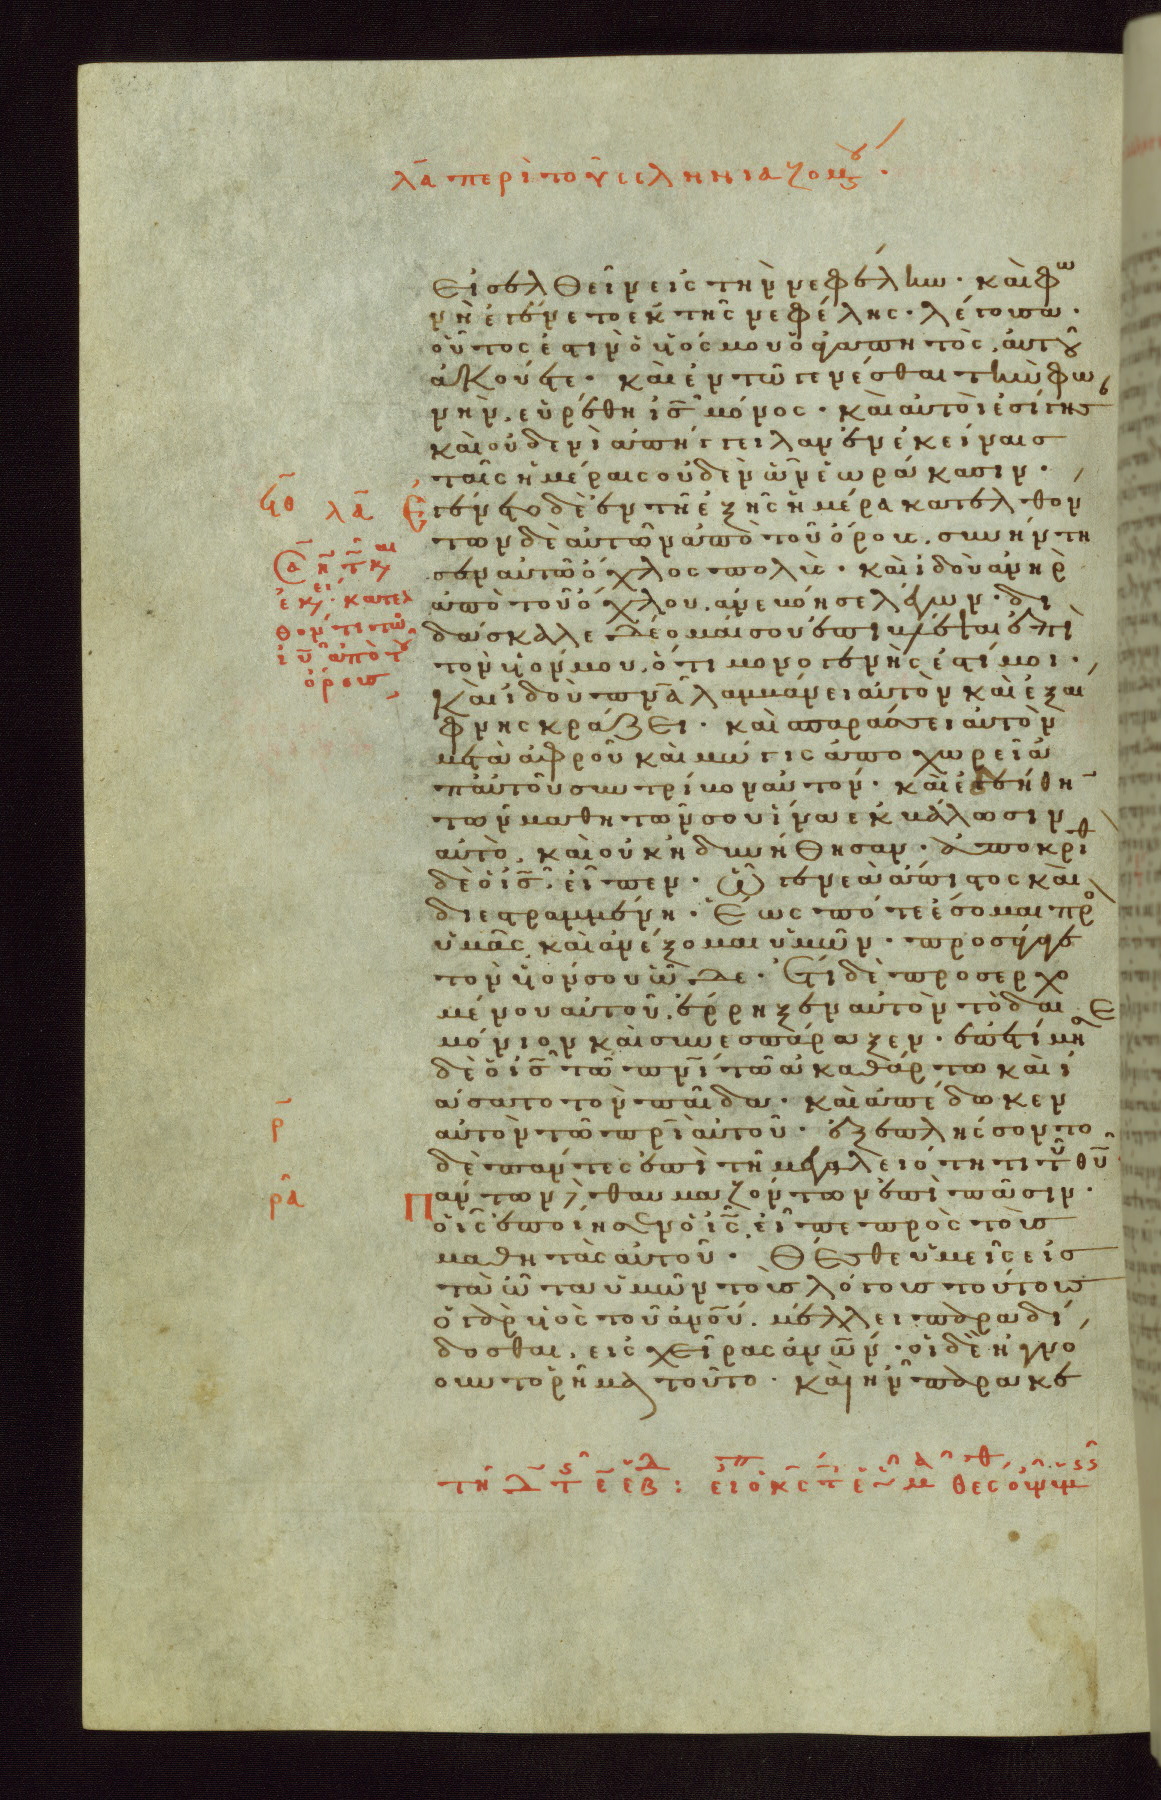 λα περὶ τοῦ σεληνιαζομένου.
εἰσελθεῖν εἰς τὴν νεφέλην. καὶ φω
νὴ ἐγένετο ἐκ τῆς νεφέλης. λέγουσα.
οὗτός ἐστιν ὁ υἱός μου ὁ ἀγαπητὸς, αὐτοῦ
ἀκούετε. καὶ ἐν τῷ γενέσθαι τὴν φω
νὴν, εὑρέθη ις μόνος. καὶ αὐτοὶ ἐσίγησ
καὶ οὐδενὶ ἀπήγγειλαν ἐν ἐκείναις
ταῖς ἡμέραις οὐδὲν ὧν ἑώρακασιν.
ϙθ λα Ἐγένετο δὲ ἐν τῇ ἑξῆς ἡμέρα κατελθόν
των δὲ αὐτῶν ἀπὸ τοῦ ὄρους. συνήντη
σεν αὐτῶ ὄχλος πολὺς. καὶ ἰδοὺ ἀνὴρ
ἀπὸ τοῦ ὄχλου, ἀνεβόησε λέγων. δι
δάσκαλε δέομαί σου ἐπιβλέψαι ἐπὶ
τὸν υἱόν μου, ὅτι μονογενής ἐστί μοι.
Καὶ ἰδοὺ πνα λαμβάνει αὐτὸν καὶ ἐξαί
φνης κράζει. καὶ σπαράσσει αὐτὸν
μετὰ ἀφροῦ καὶ μόγις ἀποχωρεῖ ἀ
π αὐτοῦ συντρίβον αὐτόν. καὶ ἐδεήθην
τῶν μαθητῶν σου ἵνα ἐκβάλωσιν
αὐτὸ, καὶ οὐκ ἠδυνήθησαν. ἀποκριθ
δὲ ὁ ις, εἶπεν. ὦ γενεὰ ἄπιστος καὶ
διεστραμμένη. Ἕως πότε ἔσομαι πρὸ
ὑμᾶς καὶ ἀνέξομαι ὑμῶν. προσάγαγε
τὸν υἱόν σου ὧδε. Ἔτι δὲ προσερχο
μένου αὐτοῦ, ἔρρηξεν αὐτὸν τὸ δαι
μόνιον καὶ συνεσπάραξεν. ἐπετίμη
δὲ ὁ ις τῶ πνι τῶ ἀκαθάρτω καὶ ἰ
άσατο τὸν παῖδα. καὶ ἀπέδωκεν
ρ αὐτὸν τῶ πρι αὐτοῦ. ἐξεπλήσσοντο
δὲ πάντες ἐπὶ τῆ μεγαλειότητι τοῦ θυ
ρα Πάντων δὲ θαυμαζόντων ἐπὶ πᾶσιν
οἷς ἐποίησεν ὁ ις, εἶπε πρὸς τοὺς
μαθητὰς αὐτοῦ. Θέσθε ὑμεῖς εἰς
τὰ ὦτα ὑμῶν τοὺς λόγους τούτους
ὁ γὰρ υἱὸς τοῦ ανου, μέλλει παραδί
δοσθαι, εἰς χεῖρας ανων. οἱ δὲ ἠγνό
ουν τὸ ῥῆμα τοῦτο. καὶ ἦν παρακε
κατελ
θόντι τῶ
ιυ ἀπὸ τοῦ
ὄρους